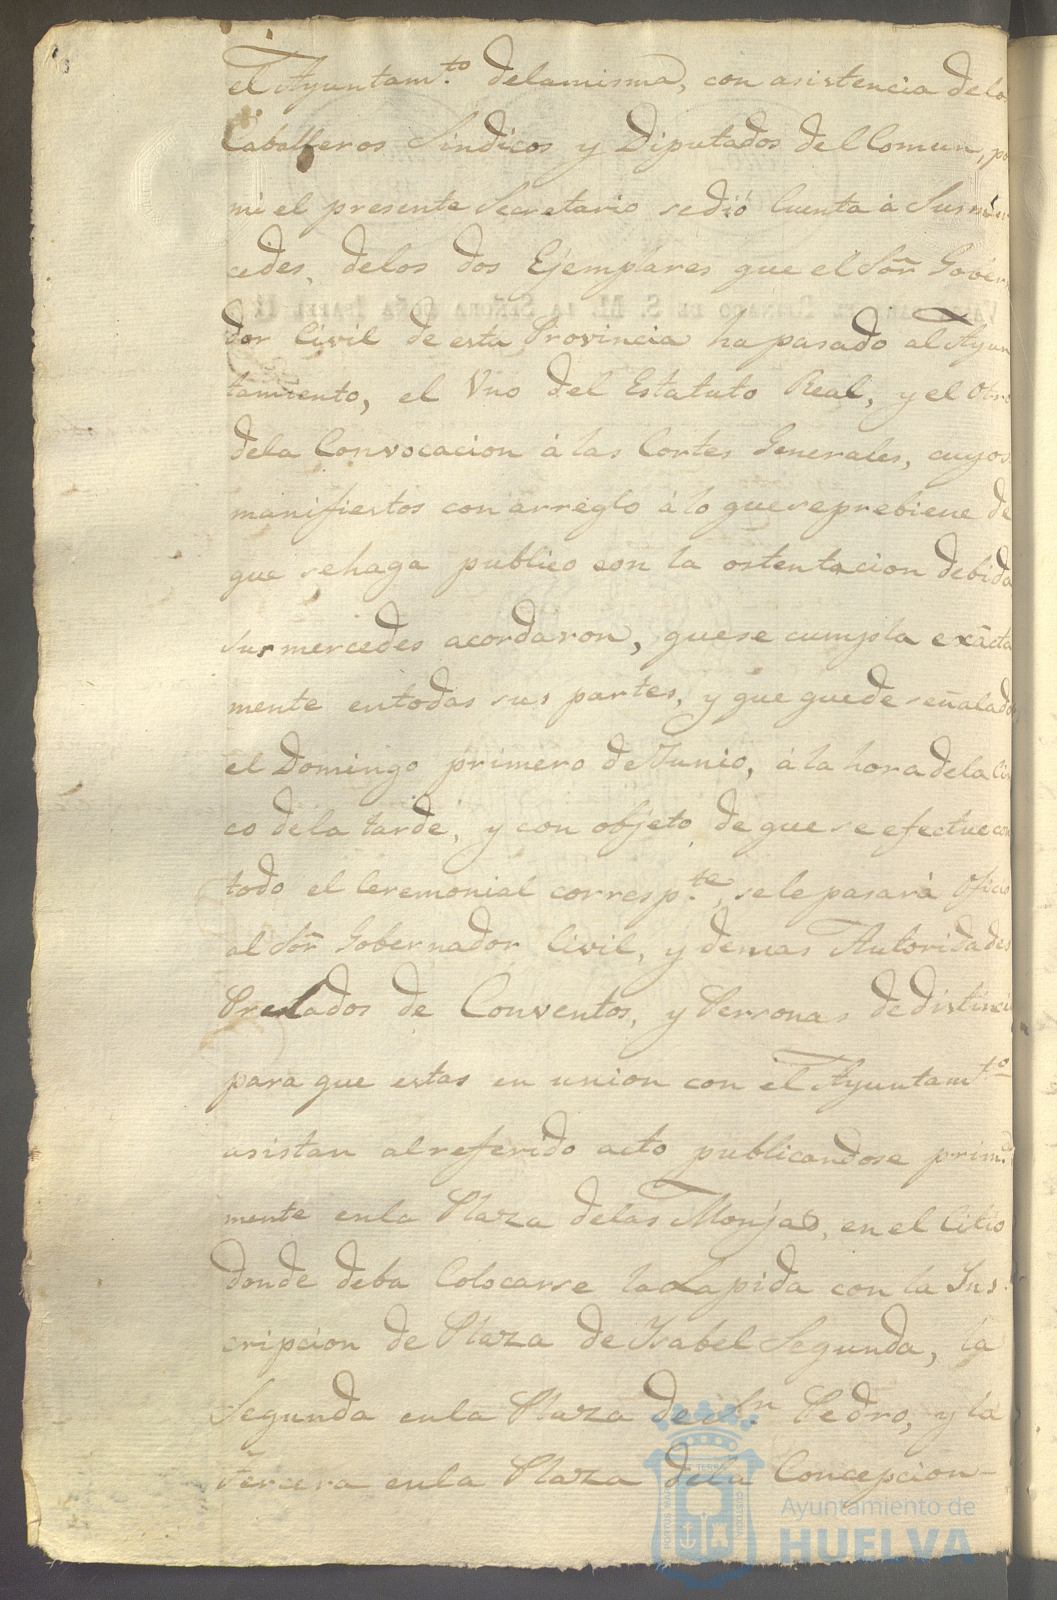 el Ayuntam.to delamisma, con asistencia delo
Caballeros Sindicos y Diputados del Comun, po
mi el presente Secretario sedió Cuenta á Susmer
cedes, delos dos Ejemplares que el Sõr Gober
dor Civil de esta Provincia ha pasado al Ayun
tamiento, el Vno del Estatuto Real, y el Otro
dela Convocacion á las Cortes Generales, cuyos
manifiestos con arreglo á lo queseprebiene de
que sehaga publico con la ostentacion debida
susmercedes acordaron, quese cumpla exâcta
mente entodas sus partes, y que quede señalado
el Domingo primero de Junio, á la hora dela Cin
co dela tarde, y con objeto de que se efectue con
todo el Ceremonial corresp.te, sele pasará Oficio
al Sõr Gobernador Civil, y demas Autoridades
Prelados de Conventos, y Personas de distinci
para que estas en union con el Ayuntam.to
asistan al referido acto publicandose prim.a
mente enla Plaza delas Monjas, en el Citio
donde deba Colocarse la Lapida con la Ins
cripcion de Plaza de Isabel Segunda, la
Segunda enla Plaza de Sn. Pedro, y la
tercera enla Plaza dela Concepcion
Ayuntamiento de
HUELVA